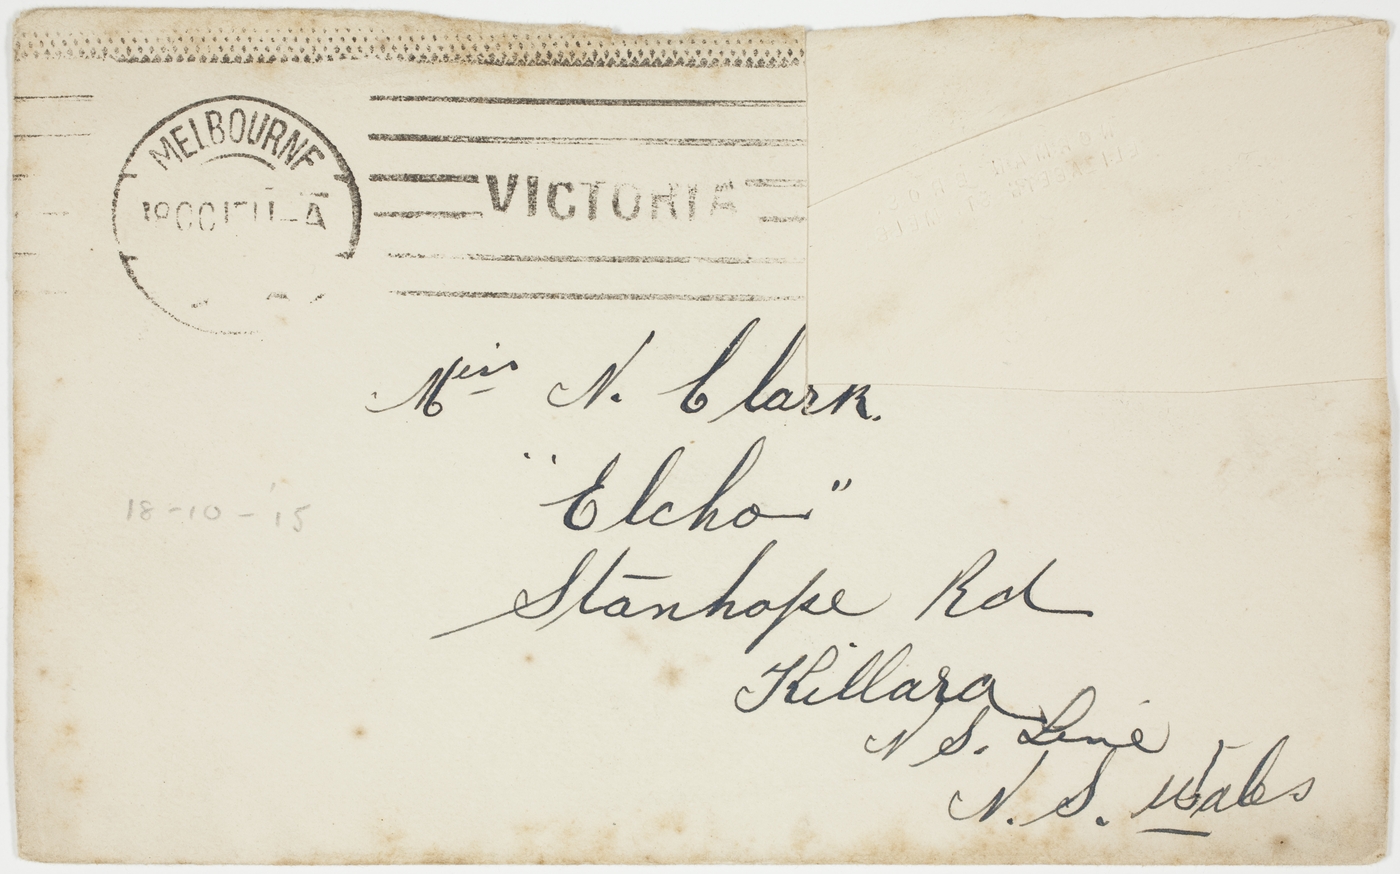 MELBOURNE
VICTORIA
Miss N. Clark.
"Elcho"
18-10-'15
Stanhope Rd
Killara
N S. Line
N. S. Wales